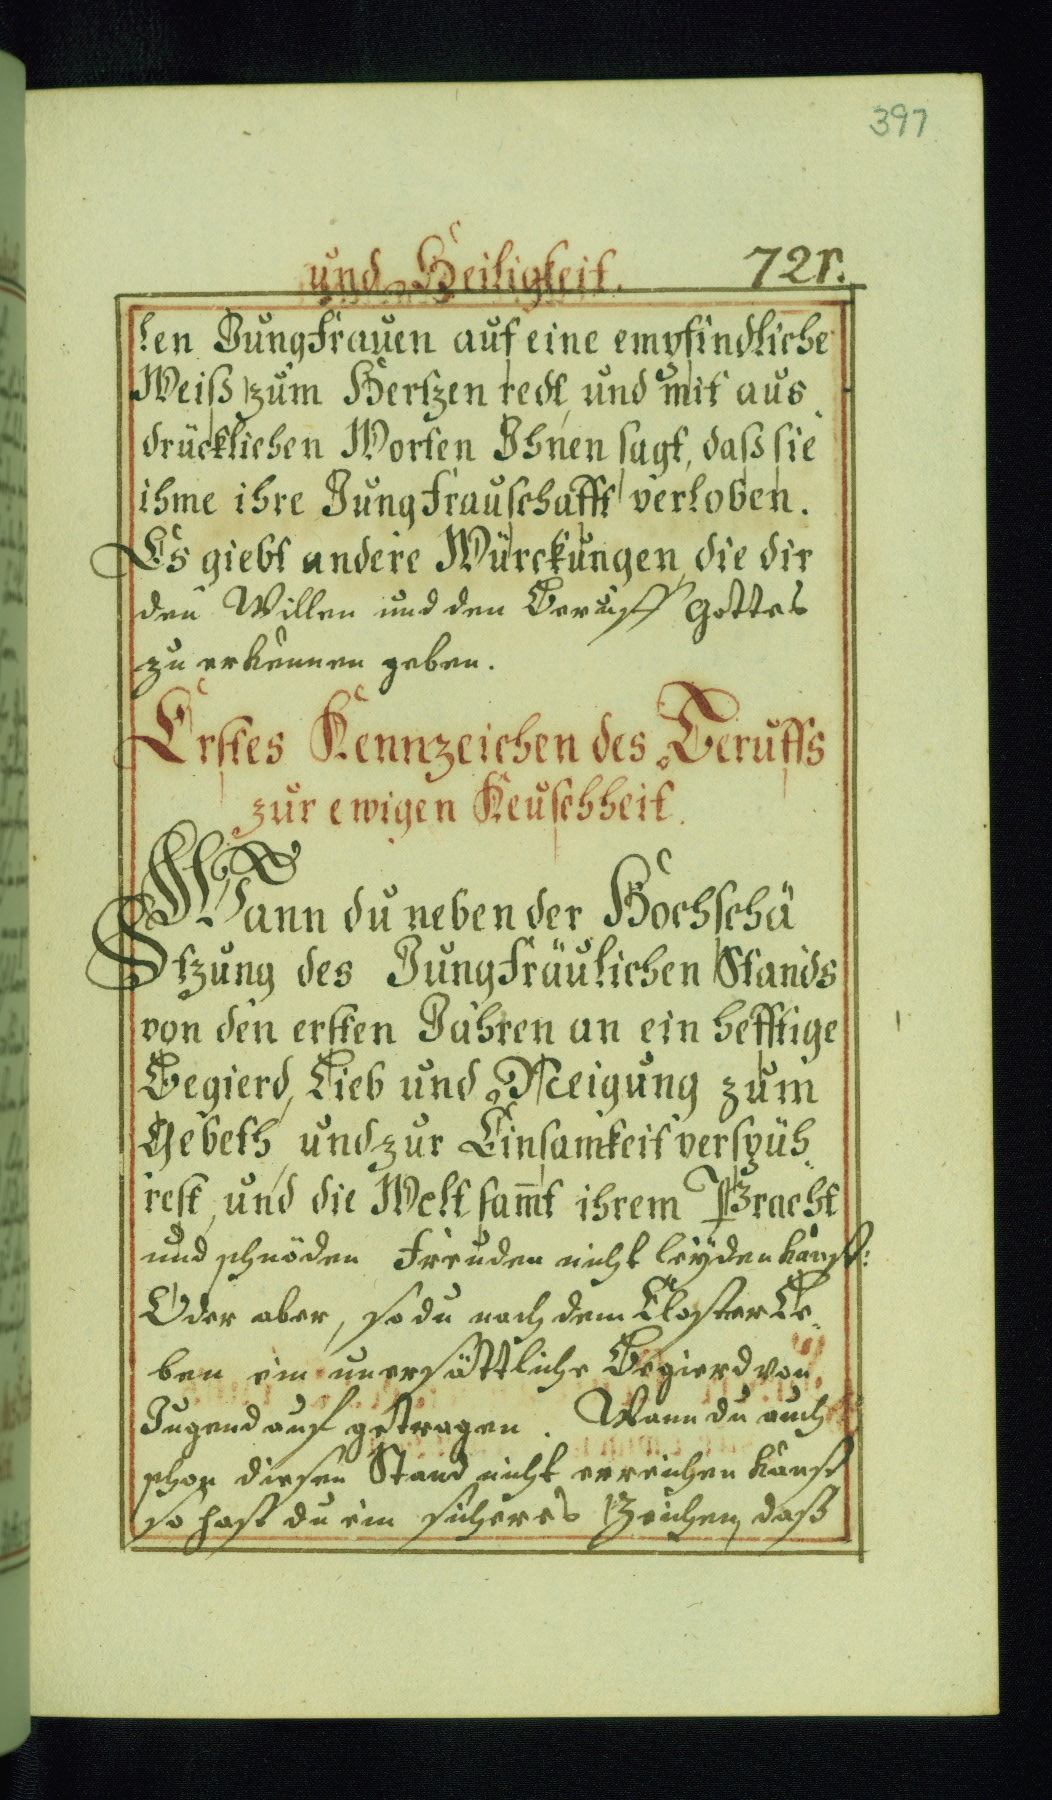 397
und Heiligkeit. 721.
len Jungfrauen auf eine empfindliche
Weiß zum Hertzen redt, und mit aus
drücklichen Worten Ihnen sagt, daß sie
ihme ihre Jungfrauschafft verloben.
Es giebt andere Würckungen, die dir
den Willen und den Beruff Gottes
zu erkennen geben.
Erstes Kennzeichen des Beruffs
zur ewigen Keuschheit.
Wann du neben der Hochschä
tzung des Jungfräulichen Stands
von den ersten Jahren an ein hefftige
Begierd, Lieb und Neigung zum
Gebeth, und zur Einsamkeit verspüh
rest, und die Welt sam̅t ihrem Pracht
und schnöden Freuden nicht leÿden kanst:
Oder aber, so du nach dem Closter Le
ben ein unersättliche Begierd von
Jugend auf getragen. Wann du auch
schon diesen Stand nicht erreichen kanst
so hast du ein sicheres Zeichen, daß